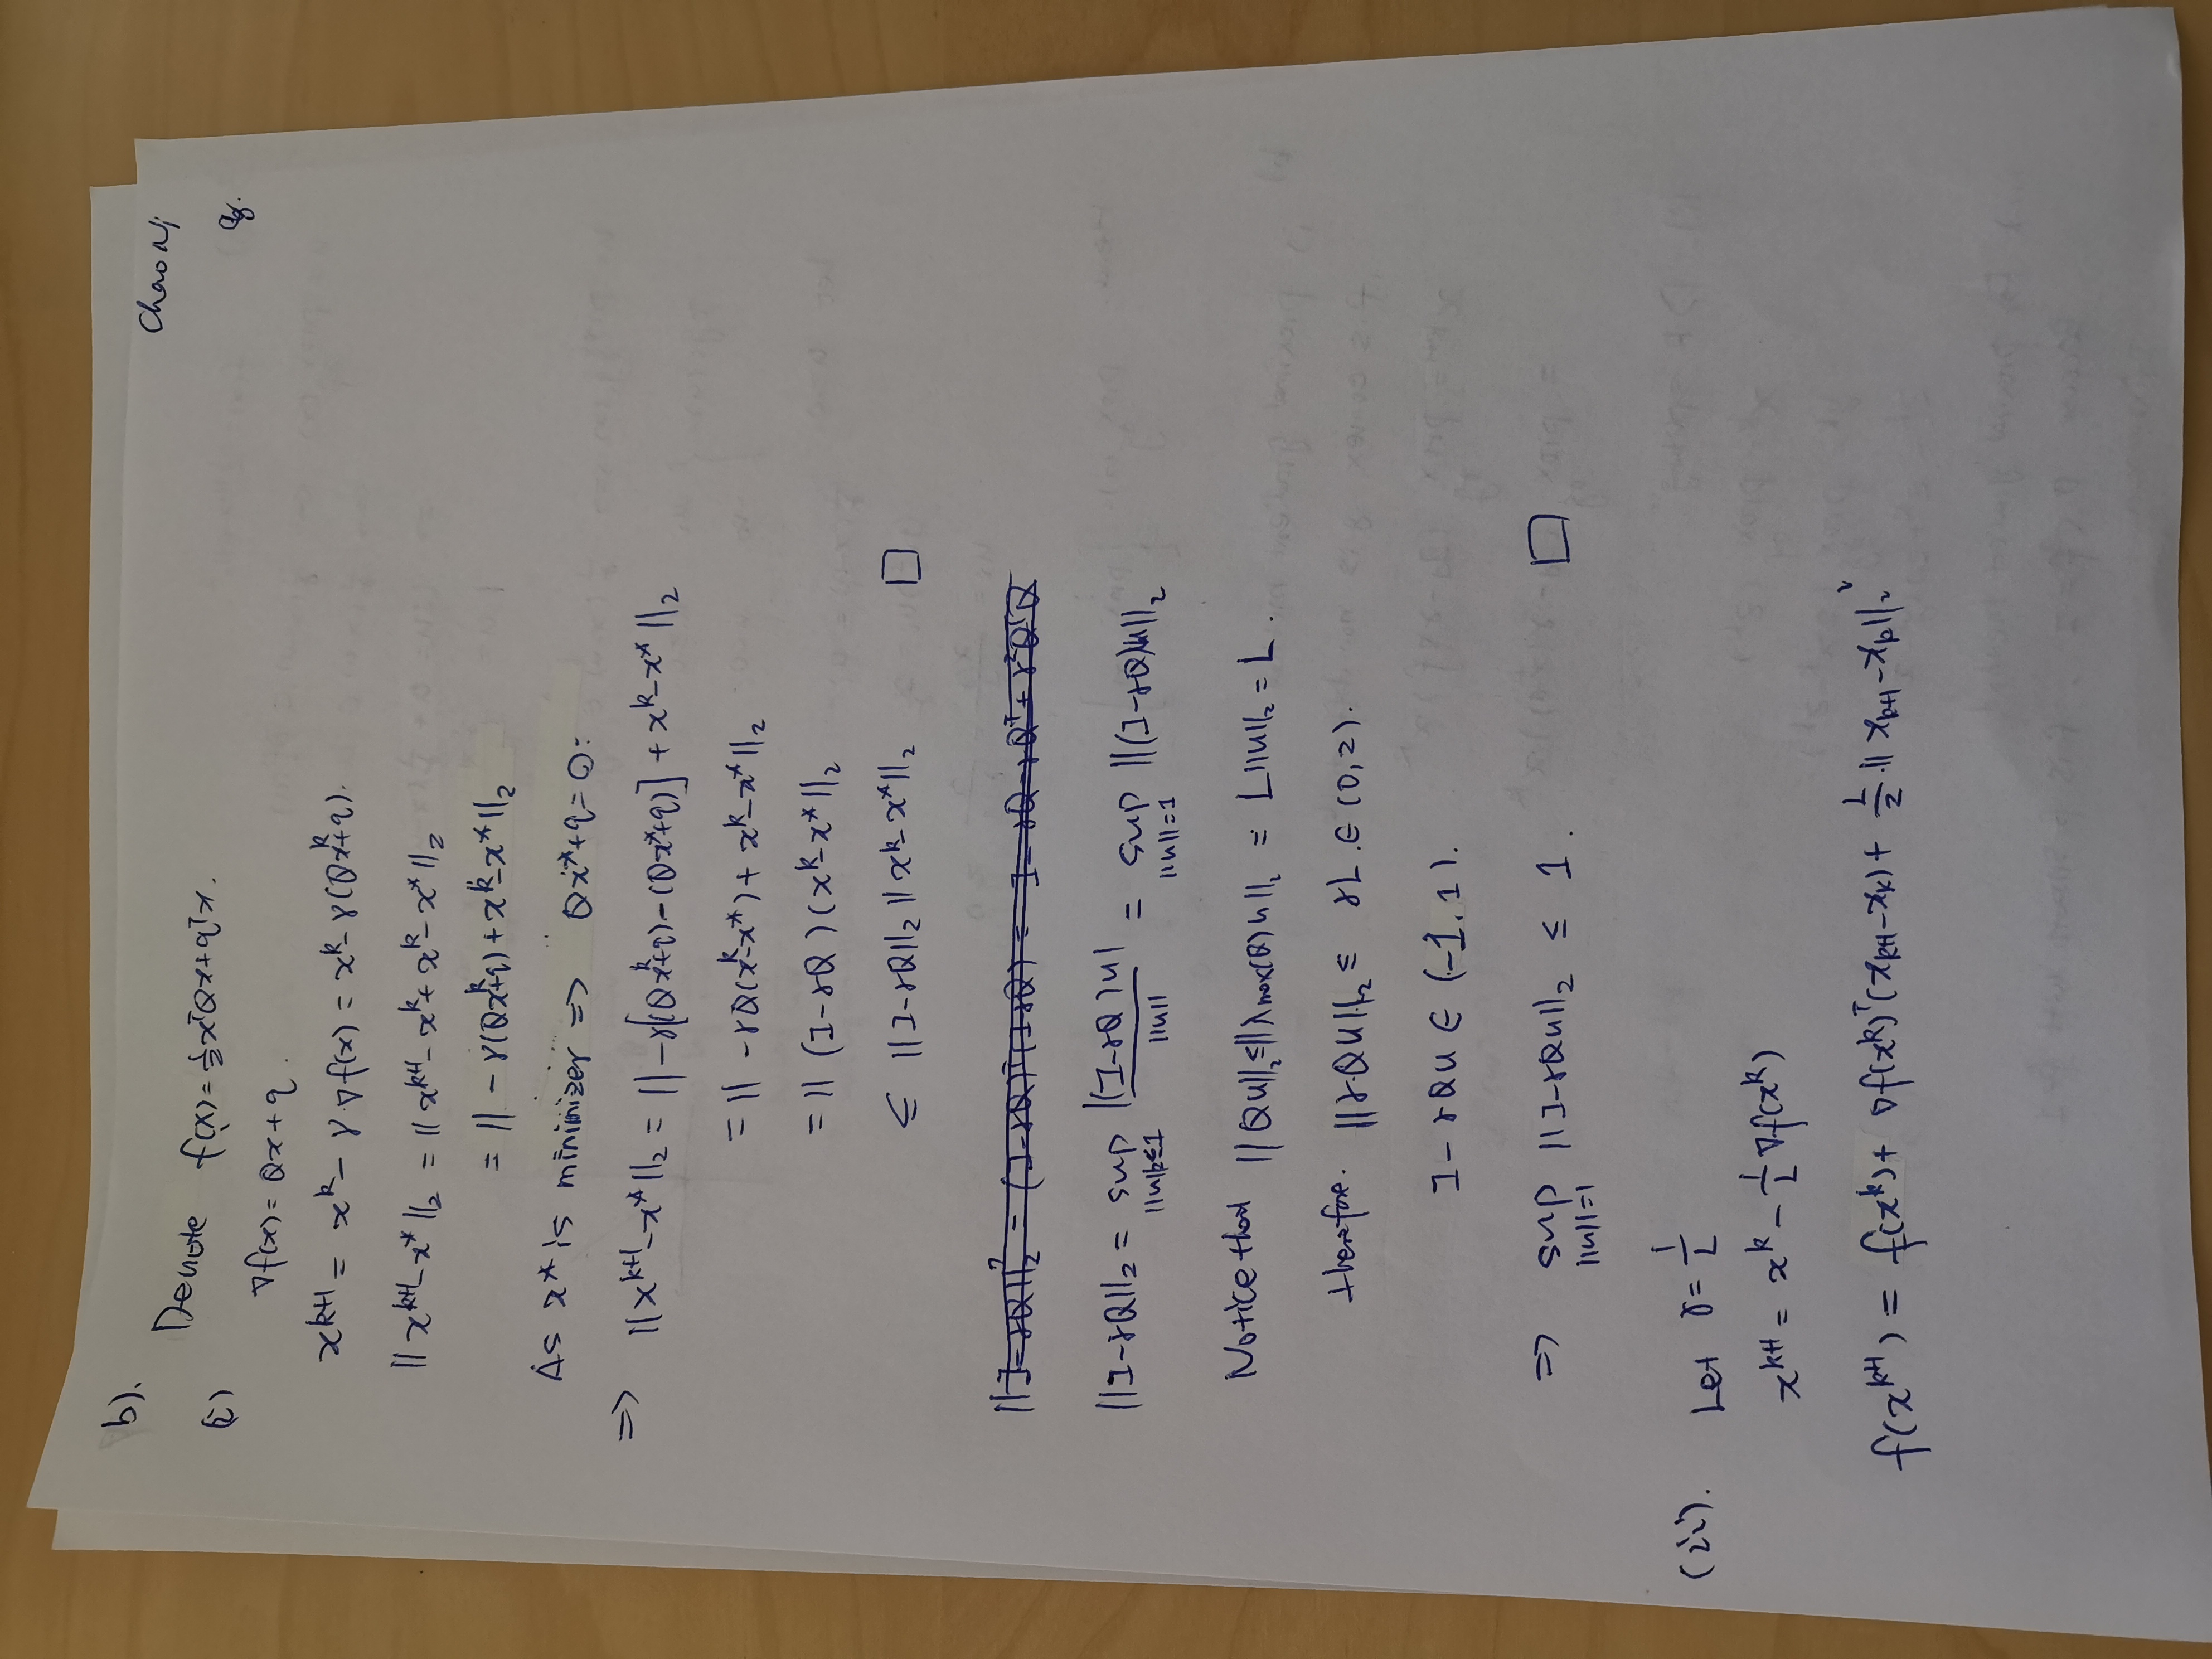 Chao Ni
b). Denote f(x) = ½xᵀQx + qᵀx.
(i) ∇f(x) = Qx + q.
x^{k+1} = x^k − γ∇f(x) = x^k − γ(Qx^k + q).
||x^{k+1} − x*||₂ = ||x^{k+1} − x^k + x^k − x*||₂
= || − γ(Qx^k + q) + x^k − x*||₂
As x* is minimizer ⇒ Qx* + q = 0:
⇒ ||x^{k+1} − x*||₂ = || − γ[(Qx^k + q) − (Qx* + q)] + x^k − x*||₂
= || − γQ(x^k − x*) + x^k − x*||₂
= || (I − γQ)(x^k − x*||₂
≤ ||I − γQ||₂ ||x^k − x*||₂ □
||I − γQ||₂² = (I − γQ)ᵀ(I − γQ) = I − γQ − γQᵀ + γ²QᵀQ
||I − γQ||₂ = sup_{||u||≤1} |(I − γQ)u| / ||u|| = sup_{||u||=1} ||(I − γQ)u||₂
Notice that ||Qu||₂ ≤ ||λmax(Q)u||₂ = L||u||₂ = L.
therefore. ||γQu||₂ ≤ γL ∈ (0,2).
I − γQu ∈ (−1, 1).
⇒ sup_{||u||=1} ||I − γQu||₂ ≤ 1. □
(ii). Let γ = 1/L
x^{k+1} = x^k − 1/L ∇f(x^k)
f(x^{k+1}) = f(x^k) + ∇f(x^k)ᵀ(x_{k+1} − x_k) + L/2 ||x_{k+1} − x_k||₂²